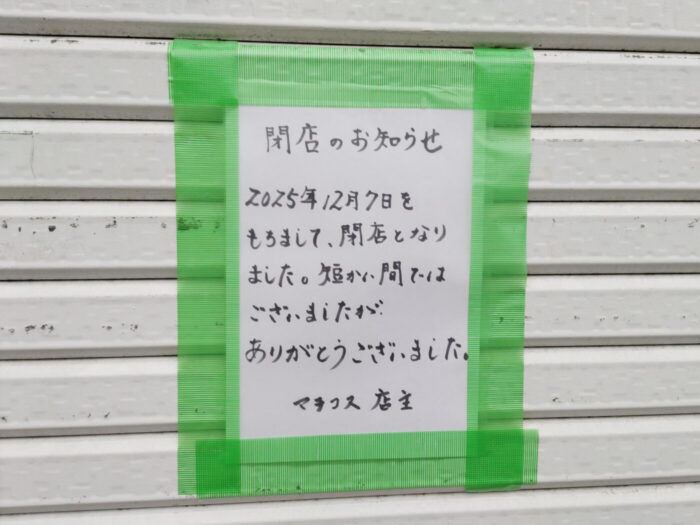 閉店のお知らせ
2025年12月7日を
もちまして、閉店となり
ました。短かい間では
ございましたが
ありがとうございました。
マチコス 店主